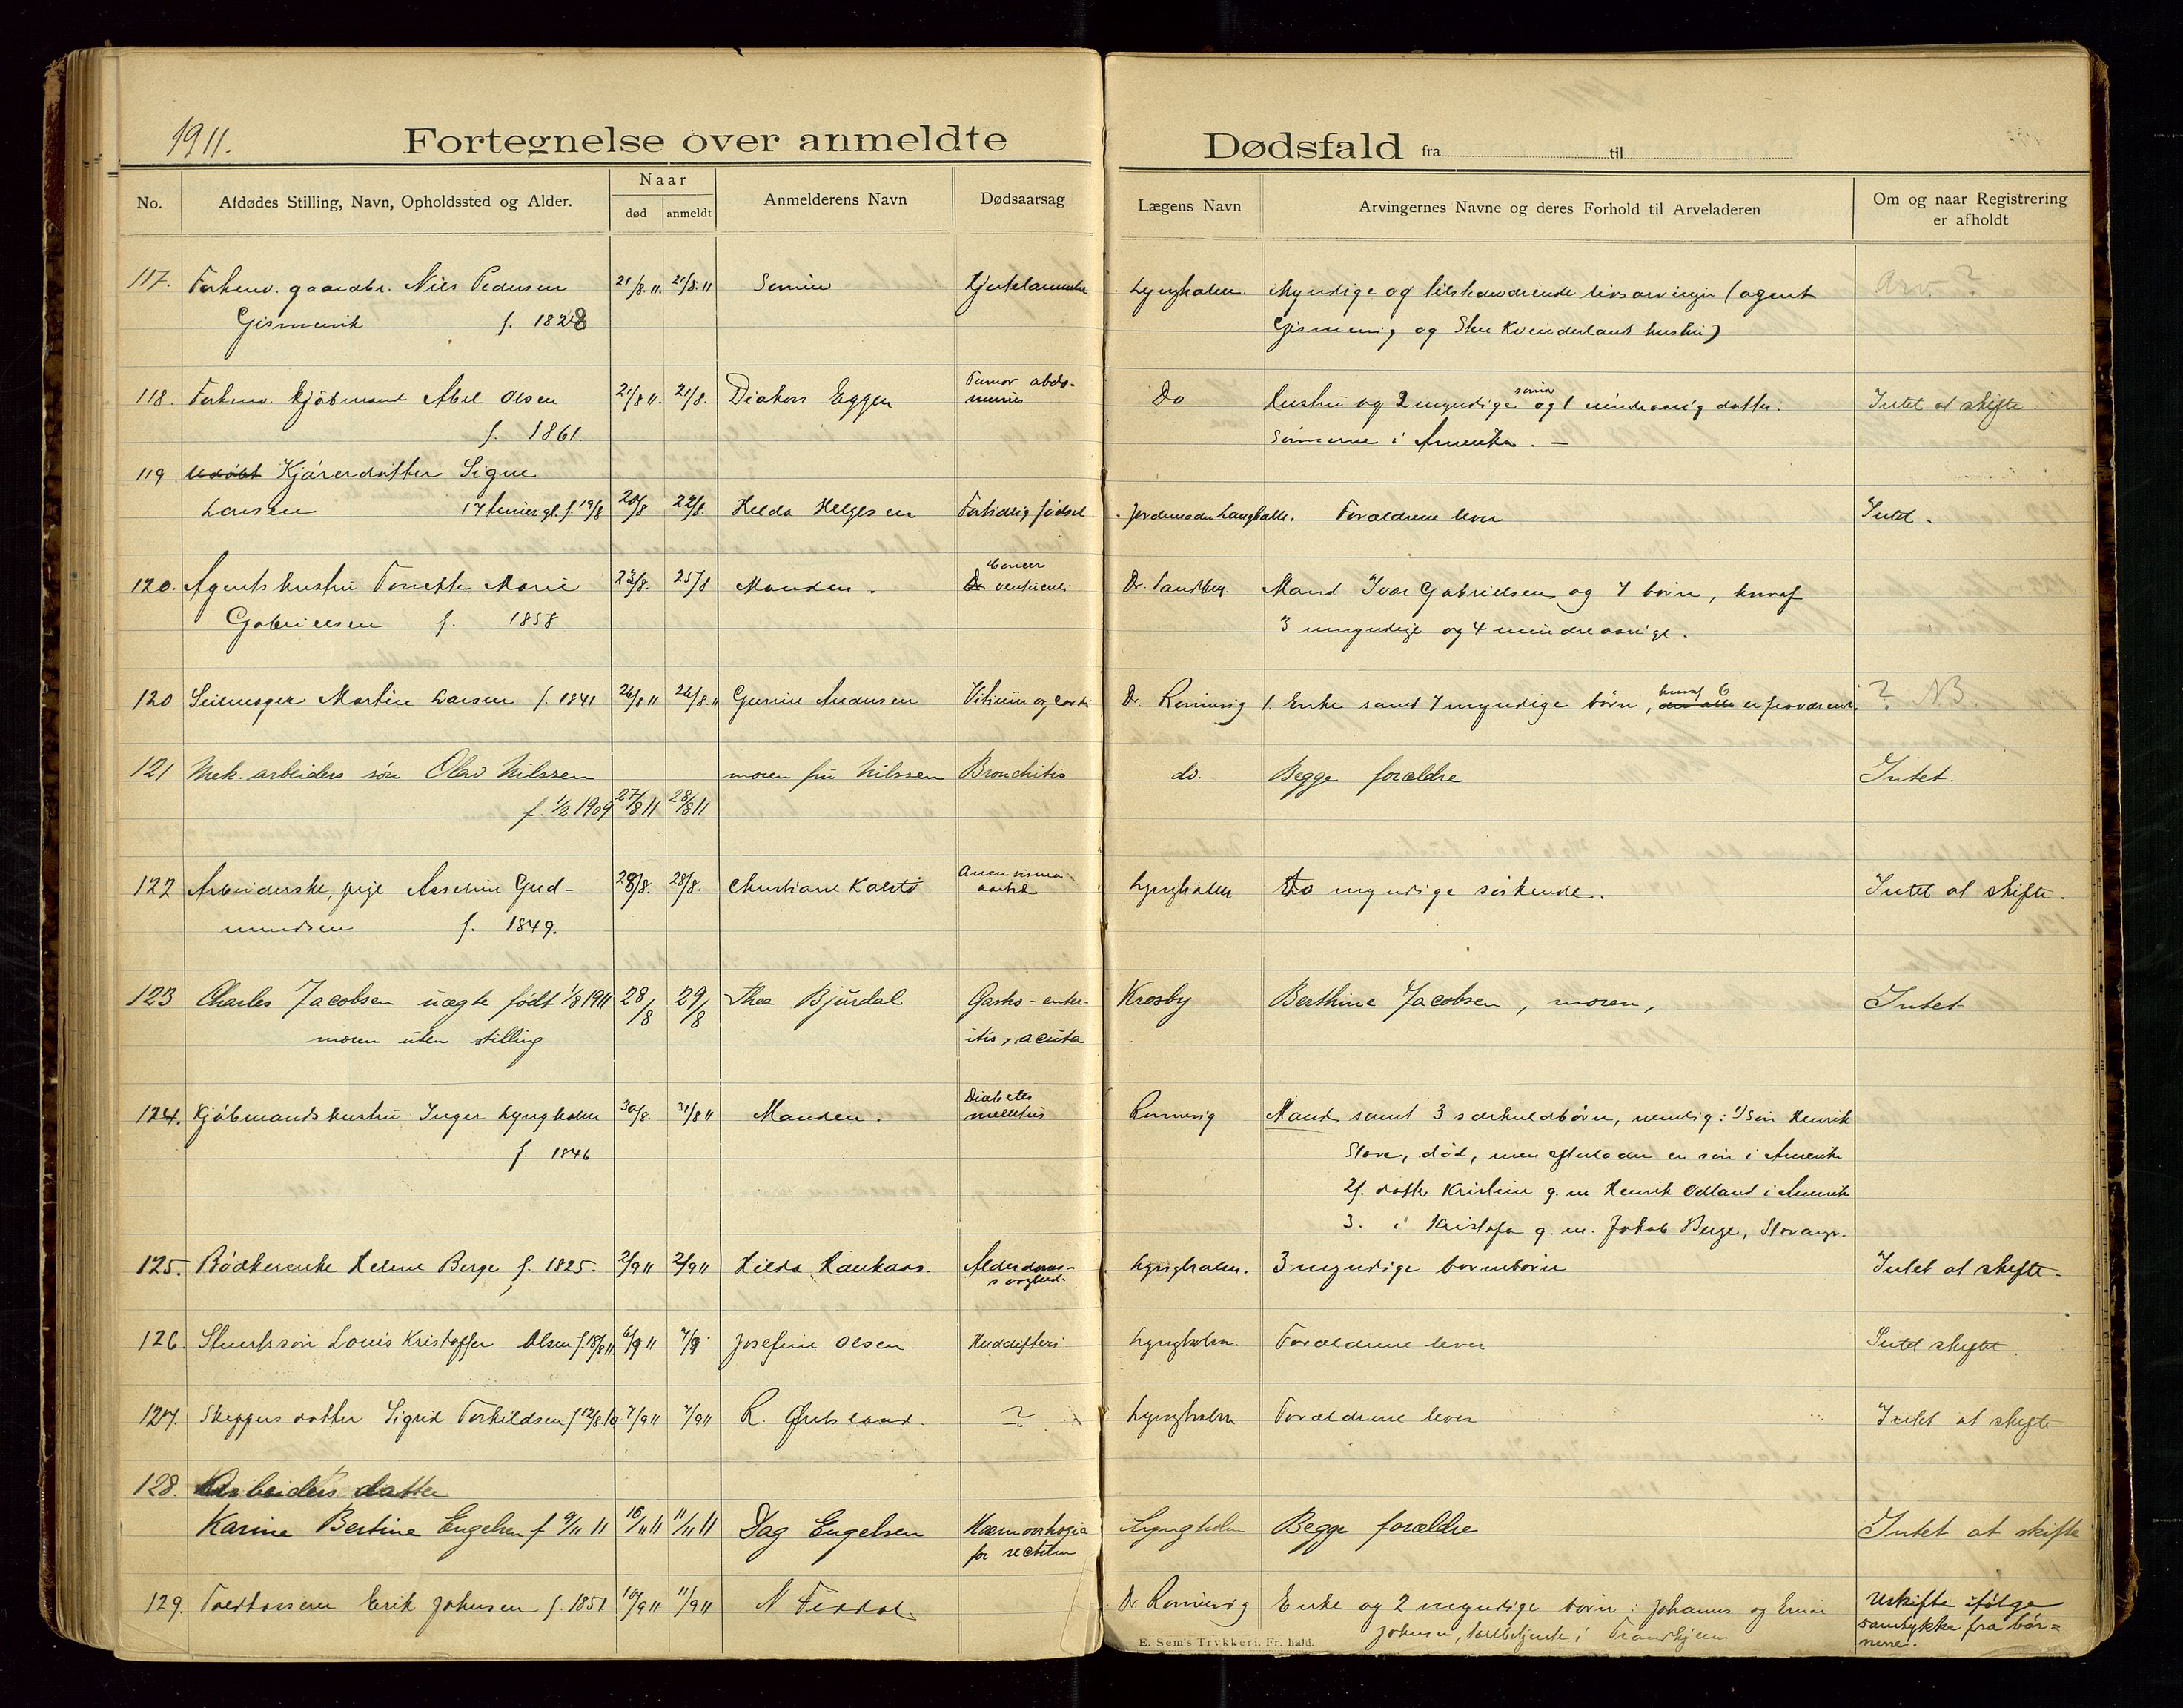 1911.
Fortegnelse over anmeldte
Dødsfald fra til
No.
Afdødes Stilling, Navn, Opholdssted og Alder.
Naar
død
anmeldt
Anmelderens Navn
Dødsaarsag
Lægens Navn
Arvingernes Navne og deres Forhold til Arveladeren
Om og naar Registrering
er afholdt
117. Forhenv. gaardbr. Niels Pedersen 21/8.11. 21/8.11 Lyngholm. Myndige og tilstedeværende livsarvinger (agent Arv. ?
Gismervik f. 1828 Gismervig og hustru)
Tumor abdo-
118. Forhenv. kjøbmand Abel Olsen 21/8 11. 21/8. Diakon Eggen minis Do Hustru og 2 myndige sønner og 1 mindreaarig datter. Intet at skifte.
f. 1861. Sønnerne i Amerika. —
119 Kjørerdatter Signe
Larsen 17 timer gl. f. 19/8 20/8 22/8. Hilda Helgesen Fortidlig fødsel Jordemoder Langballe. Forældrene lever Intet.
Cancer
120. Agents hustru Tonette Marie 23/8. 25/8 Manden. ventriculi Dr. Sandberg. Mand Ivar Gabrielsen og 7 børn, hvoraf
Gabrielsen f. 1858 3 myndige og 4 mindreaarige.
120 Seilmager Martin Larsen f. 1841 26/8 11 26/8.11 Gurine Andersen Vitium org. cordis Dr. Rommerig 1. Enke samt 7 myndige børn, hvoraf 6 er fraværende. ? NB.
121 Mek. arbeiders søn Olav Nilssen moren fru Nilssen Bronchitis do. Begge forældre Intet.
f. 1/2 1909 27/8 11 28/8 11
Aneurisma
122 Arbeiderske, pige Asseline Gud- 28/8. 28/8. Christiane Kalstø aortæ Lyngholm To myndige søskende. Intet at skifte.
mundsen f. 1849.
123 Charles Jacobsen uægte født 1/8 1911 28/8 29/8 Thea Bjurdal Gastro-enter- Krosby Berthine Jacobsen, moren, Intet
moren uten stilling itis, acuta
Diabetes
124. Kjøbmands hustru Inger Lyngholm 30/8. 31/8 11 Manden. mellitus Rommerig Mand samt 3 særkuldbørn, nemlig: 1) Søn Henrik
f. 1846 Stove, død, men efterlader en søn i Amerika
2). datter Kristine g. m. Henrik Odland i Amerika
3. i Kristofa g. m. Jakob Berge, Stavanger.
125. Bødkerenke Helene Berge f. 1825. 2/9 11 2/9 11 Hilda Haukaas. Alderdoms- Lyngholm. 3 myndige børnebørn Intet at skifte.
svaghed.
126. Stuertsøn Louis Kristoffer Olsen f. 18/8 11 6/9 11 7/9 Josefine Olsen Huddifteri Lyngholm. Forældrene lever Intet skiftet.
127. Skippers datter Sigrid Torkildsen f 12/8 10 7/9 11 7/9 11 R. ? Lyngholm Forældrene lever Intet at skifte
128. Arbeiders datter
Karine Bertine Engelsen f 9/11 11 10/11 11 11/11 11 Dag Engelsen Hæmorrhagia Lyngholm Begge forældre Intet at skifte
for rectum
129. Toldkasserer Erik Johnsen f. 1851 10/9 11 11/9 11 Dr. Rommerig Enke og 2 myndige børn: Johannes og Uskifte ifølge
Johnsen, toldbetjente i Trondhjem samtykke fra bør=
nene.
E. Sem's Trykkeri, Fr.hald.